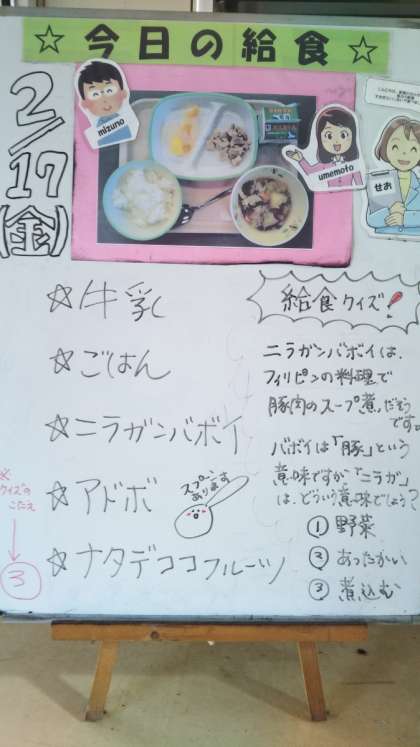 ☆今日の給食☆
2/17(金)
mizuno
umemoto
せお
☆牛乳
☆ごはん
☆ニラガンバボイ
☆アドボ
スプーン
あります
☆ナタデココフルーツ
給食クイズ!
ニラガンバボイは、
フィリピンの料理で
豚肉のスープ煮だそう
です。
バボイは「豚」という
意味ですが「ニラガ」
は、どういう意味でしょう?
①野菜
②あったかい
③煮込む
※
クイズの
こたえ
↓
③